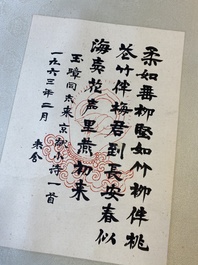 柔如垂柳堅如竹柳伴桃
花竹伴梅君到長安春似
海賣花声里燕初来
玉璋同志来京献小诗一首
一九六三年二月
老舍